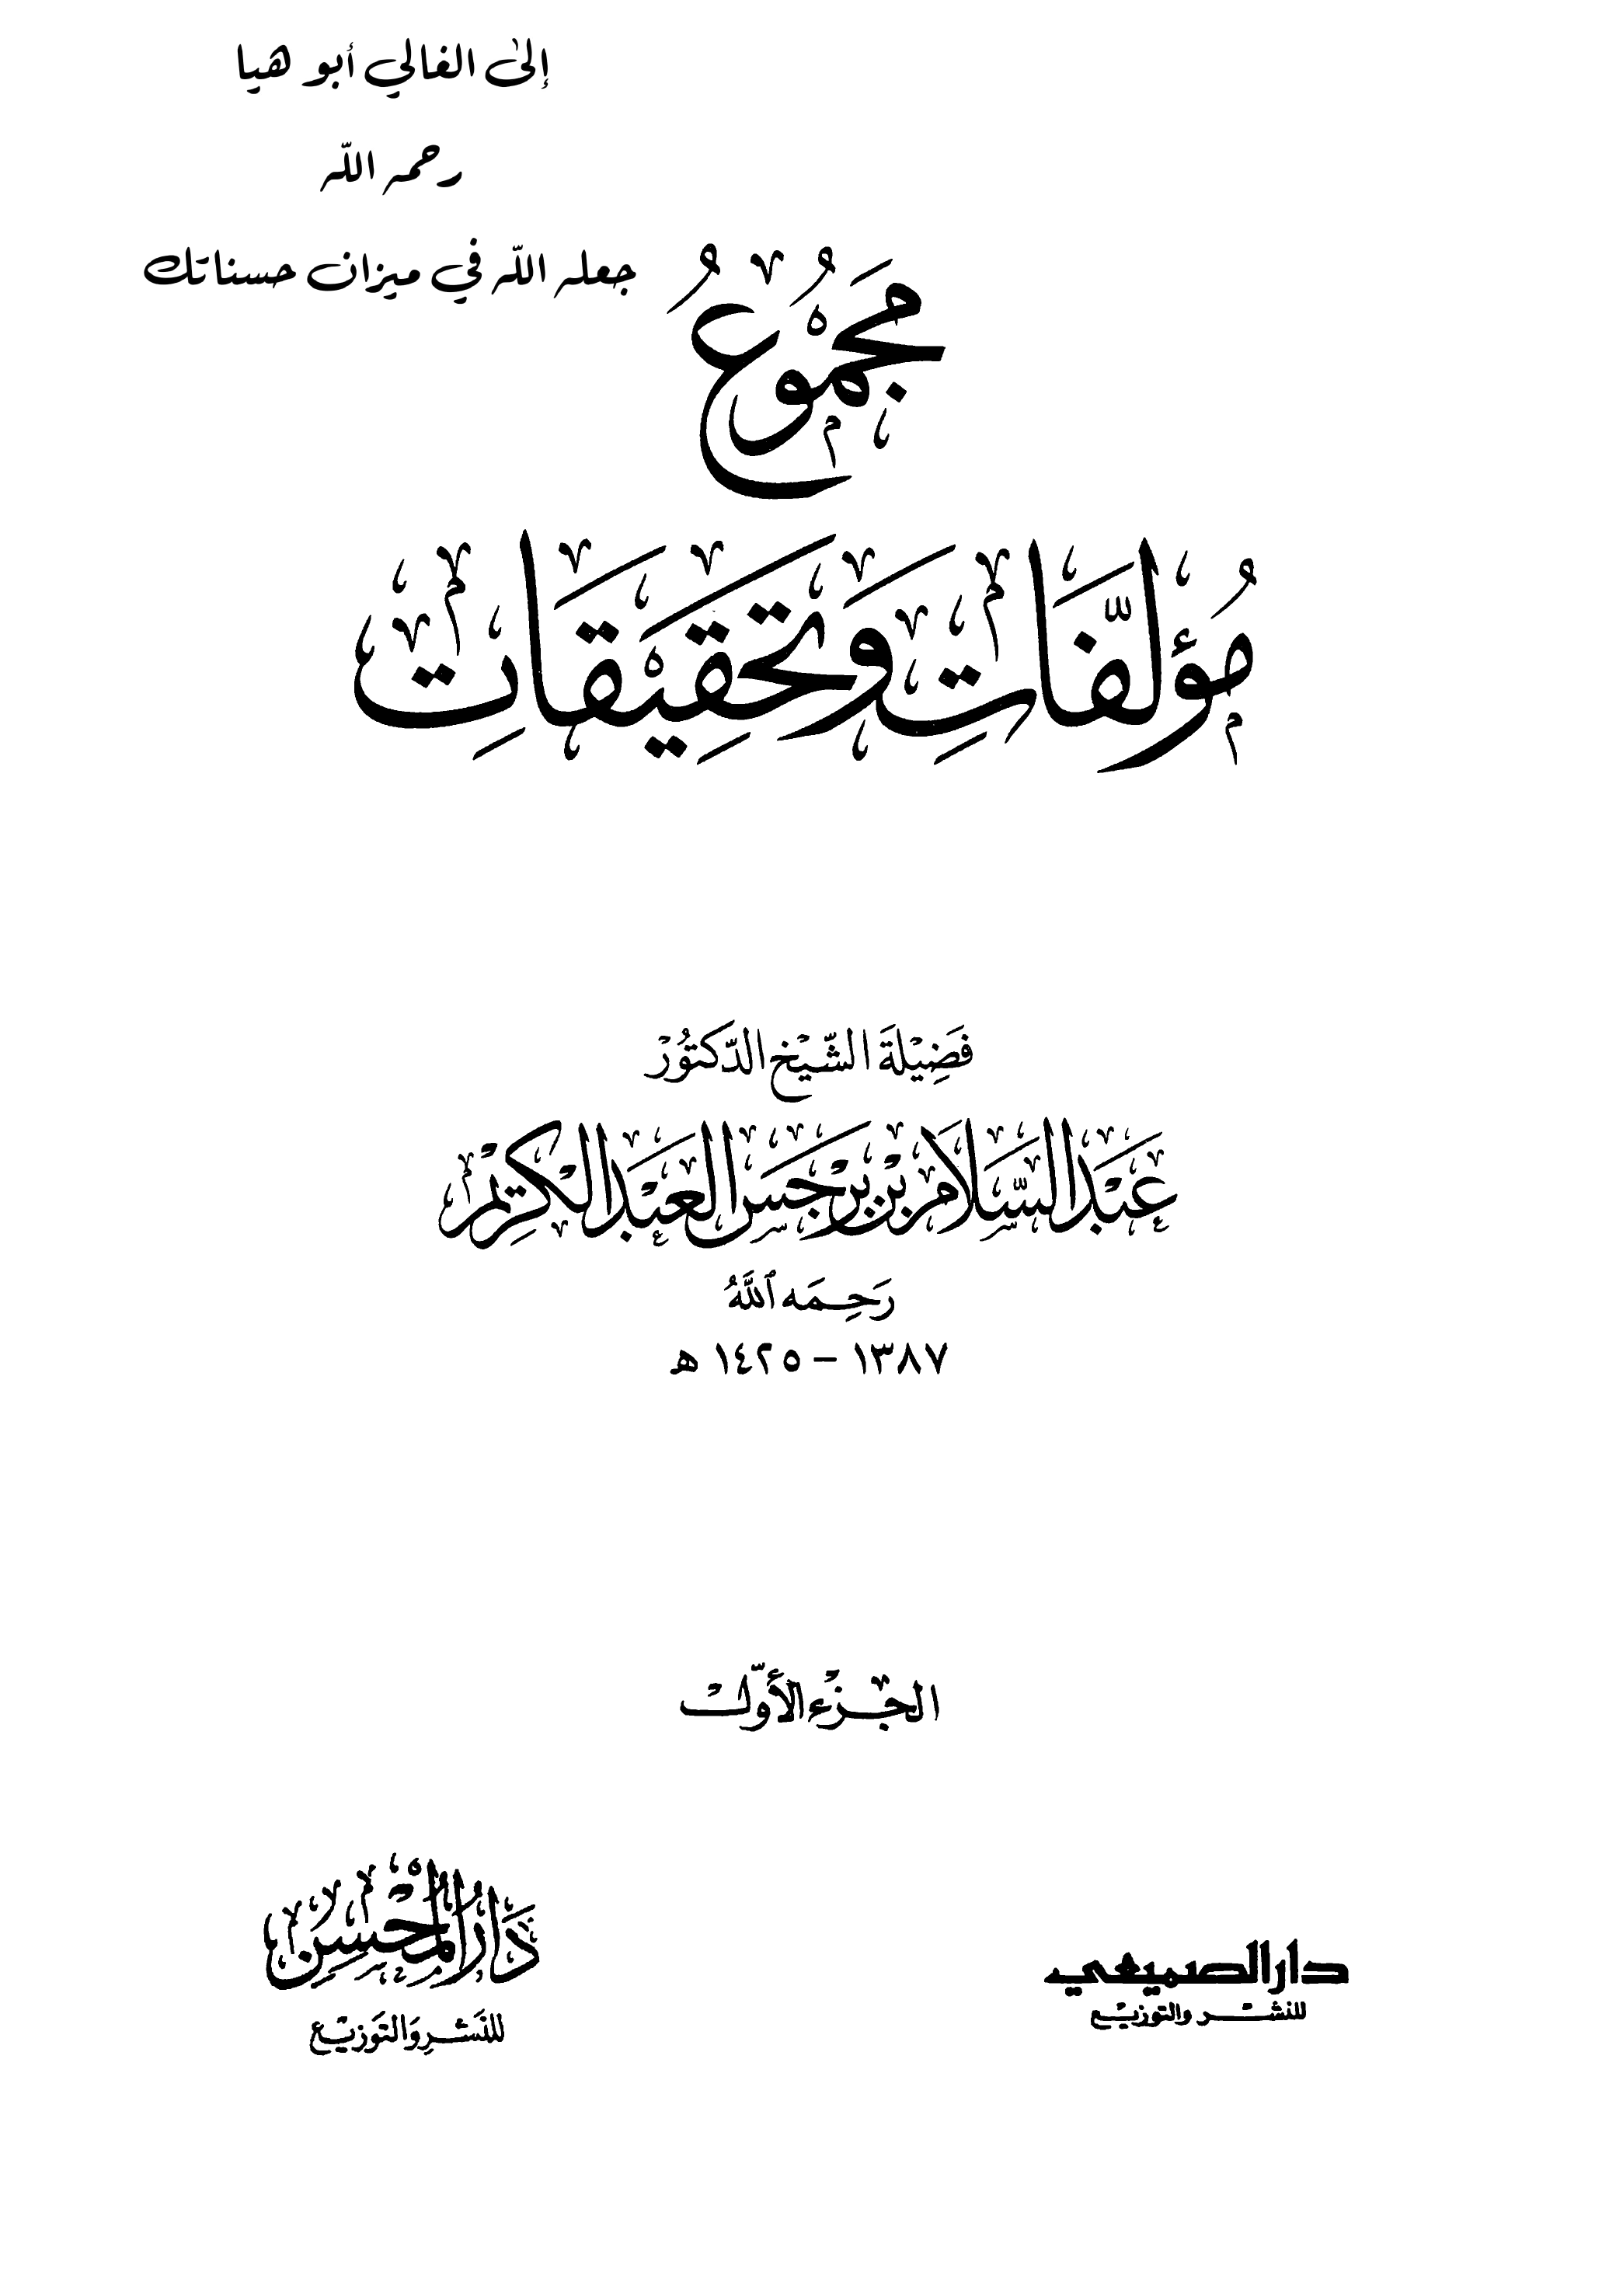 إلى الغالي أبو هيا
رحمه الله
جعله الله في ميزان حسناتك
مَجْمُوعُ
مُؤلَّفَاتِ وَتَحْقِيْقَاتِ
فَضِيْلَةَ الشَّيْخ الدَّكتُوْرْ
عَبْدِ السَّلَامِ بْنِ بَرْجَسِ العَبْدِ الكَرِيْمِ
رَحِمَه ٱللَّهُ
١٣٨٧ – ١٤٢٥ ه
الجزء الأوّل
دَارُ المُحْسِنِ
للنَشرِ وَالتَوَزيْع
دار الصميعي
للنشر والتوزيع